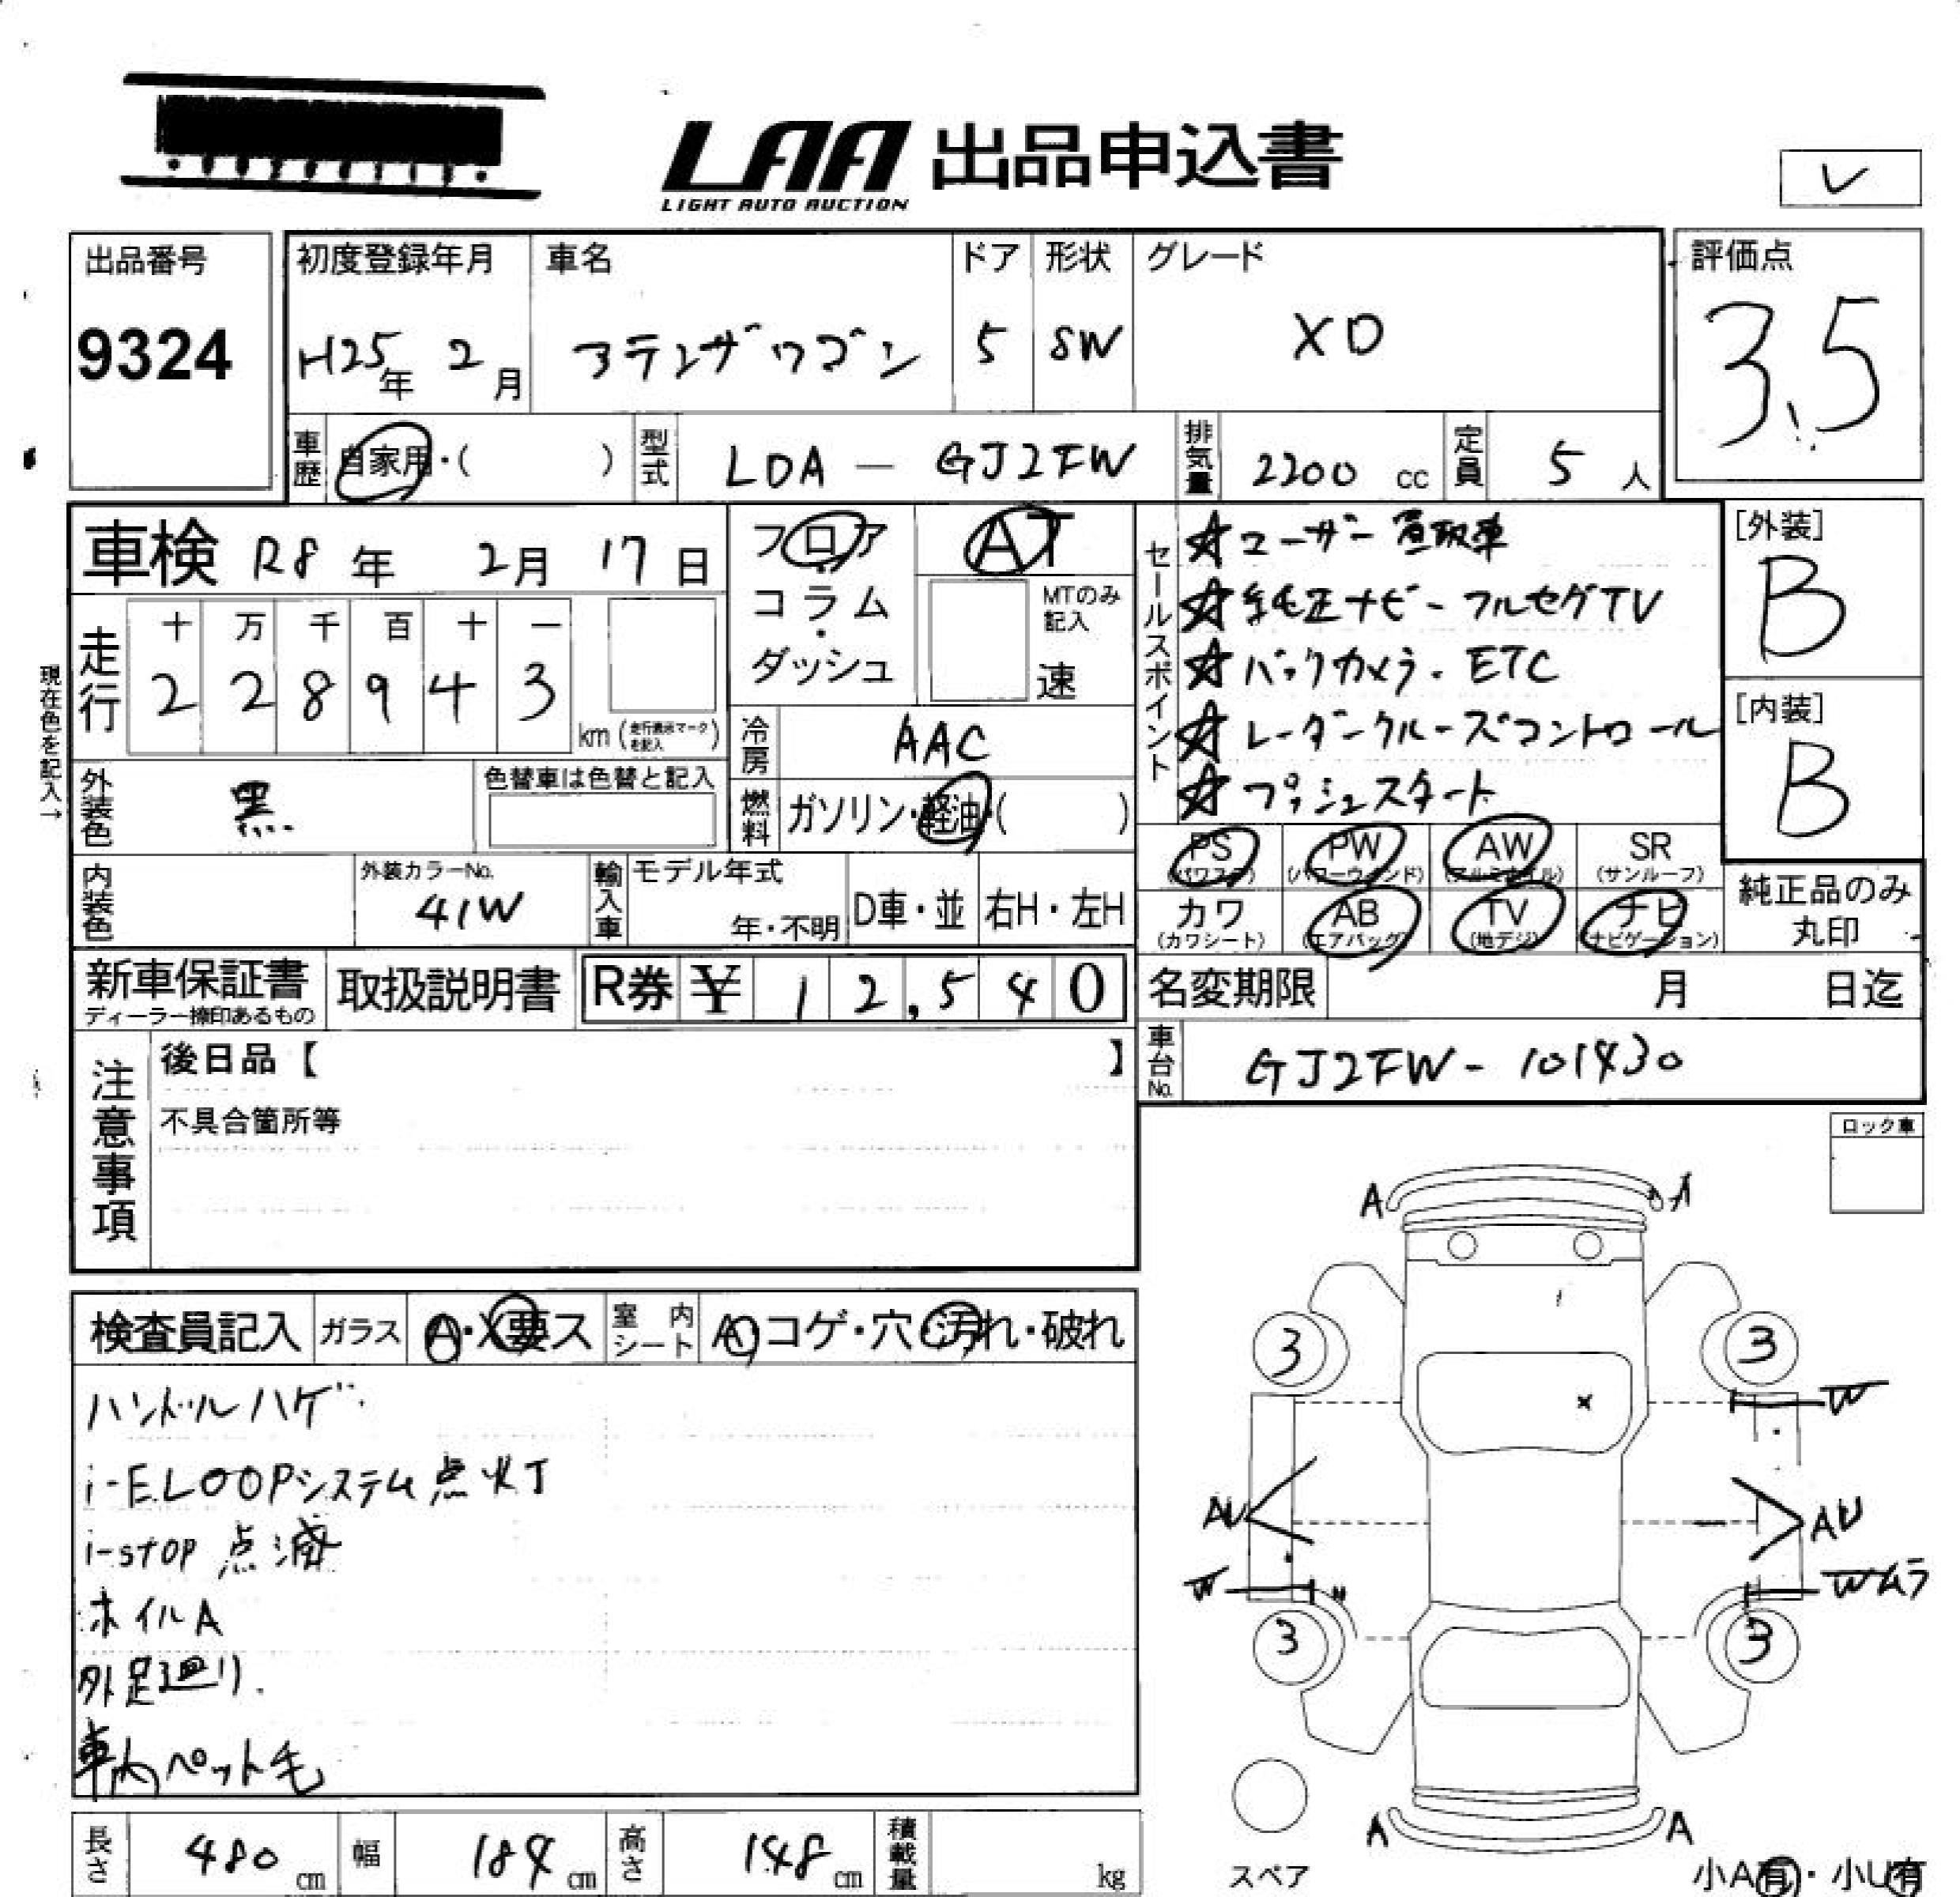 LAA 出品申込書
LIGHT AUTO AUCTION
レ
出品番号
9324
初度登録年月
H25年 2月
車名
アテンザワゴン
ドア
5
形状
SW
グレード
XD
評価点
3.5
車歴 自家用・( )
型式 LDA - GJ2FW
排気量 2200 cc
定員 5 人
車検 R8年 2月 17日
フロア
コラム
・
ダッシュ
AT
MTのみ記入
速
セールスポイント
☆ユーザー買取車
☆純正ナビ-フルセグTV
☆バックカメラ.ETC
☆レーダークルーズコントロール
☆プッシュスタート
[外装]
B
[内装]
B
現在色を記入→
走行
十 万 千 百 十 一
2 2 8 9 4 3
km (走行表示マークを記入)
冷房 AAC
燃料 ガソリン・軽油・( )
外装色 黒
色替車は色替と記入
PS (パワステ)
PW (パワーウィンド)
AW (アルミホイル)
SR (サンルーフ)
カワ (カワシート)
AB (エアバッグ)
TV (地デジ)
ナビ (ナビゲーション)
純正品のみ
丸印
内装色
外装カラーNo.
41W
輸入車
モデル年式
年・不明
D車・並
右H・左H
新車保証書
ディーラー捺印あるもの
取扱説明書
R券 ¥ 12,540
名変期限 月 日迄
車台No. GJ2FW-101430
注意事項
後日品【 】
不具合箇所等
ロック車
検査員記入
ガラス A・X要ス
室内シート A コゲ・穴・汚れ・破れ
ハンドルハゲ
i-ELOOPシステム点灯
i-stop 点滅
ホイルA
外足廻り.
車内ペット毛
A A
3 3
x
W
AU AU
W Wムラ
3 3
A A
スペア
小A有・小U有
長さ 480 cm
幅 184 cm
高さ 148 cm
積載量 kg